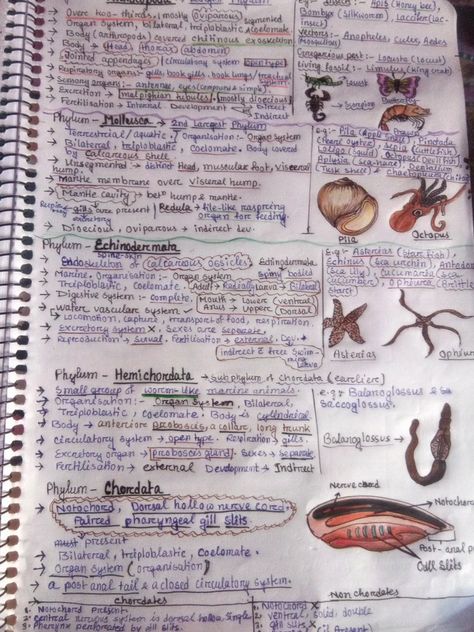 → Over two-thirds, mostly oviparous segmented
Organ system, bilateral, triploblastic, Coelomate.
→ Body (arthropods) covered chitinous exoskeleton
→ Body → (Head) (thorax) (abdomen)
→ Jointed appendages | circulatory system open type
→ Respiratory organs: gills, book gills, book lungs
→ Sensory organs :- antennae, eyes (compound & simple)
→ Excretion → malpighian tubules (mostly dioecious)
→ Fertilisation → Internal Development → Direct
Indirect
e.g:- Apis (Honey bee)
Bombyx (silkworm), Laccifer (lac-insect)
Vectors:- Anopheles, Culex, Aedes
(Mosquitoes)
Gregarious pest:- Locusta (locust)
Living fossil:- Limulus (King crab)
Scorpion
Butterfly
Prawn
Phylum - Mollusca → 2nd Largest Phylum
→ Terrestrial/aquatic, Organisation :- Organ System
→ Bilateral, triploblastic, Coelomate, Body covered
by calcareous shell
→ Unsegmented → distinct head, muscular foot, visceral
hump.
→ Mantle membrane over visceral hump.
→ Mantle cavity → b/w hump & mantle.
gills are present | Radula → file-like rasping
organ for feeding.
→ Dioecious, Oviparous → indirect dev.
e.g:- Pila (Apple Snail), Pinctada
(Pearl oyster), Sepia (Cuttlefish)
Loligo (Squid), Octopus (Devil fish)
Aplysia (sea-hare), Dentalium
Tusk shell &
Pila
Octopus
Phylum - Echinodermata
spine-skin
→ Endoskeleton of (calcareous ossicles) Echinodermata
→ Marine, Organisation:- Organ System spiny bodied
→ Triploblastic, Coelomate, Adult → Radially Larva → Bilateral
→ Digestive system:- complete. Mouth → Lower (ventral)
Anus → Upper (Dorsal)
→ water vascular system ✓
↳ Locomotion, capture & transport of food, respiration.
→ Excretory system ✗, Sexes are separate,
→ Reproduction → sexual, Fertilisation → external, Dev →
indirect & free swimming larva
e.g:- Asterias (Star fish),
Echinus (Sea urchin), Antedon
(sea lily), Cucumaria (sea
cucumber), Ophiura (Brittle
star)
Asterias
Phylum - Hemichordata → sub phylum of chordata (earlier)
→ Small group of worm-like marine animals.
→ Organisation:- Organ System, Bilateral,
Triploblastic, Coelomate, Body is cylindrical
→ Body → anterior proboscis, a collar, long trunk
→ circulatory system → open type. Respiration → gills.
→ Excretory organ → proboscis gland. Sexes → separate
→ Fertilisation → external Development → Indirect
e.g:- Balanoglossus &
Saccoglossus.
Balanoglossus →
Phylum - Chordata
→ Notochord, Dorsal hollow nerve cord,
Paired pharyngeal gill slits.
must present
→ Bilateral, triploblastic, Coelomate.
→ Organ System (organisation)
→ a post anal tail & a closed circulatory system.
Nerve chord
Notochord
Post-anal
Gill slits
Chordates
1. Notochord Present.
2. central nervous system is dorsal hollow, single.
3. Pharynx perforated by gill slits.
Non chordates
1. Notochord ✗
2. ventral, solid, double
3. gill slits ✗